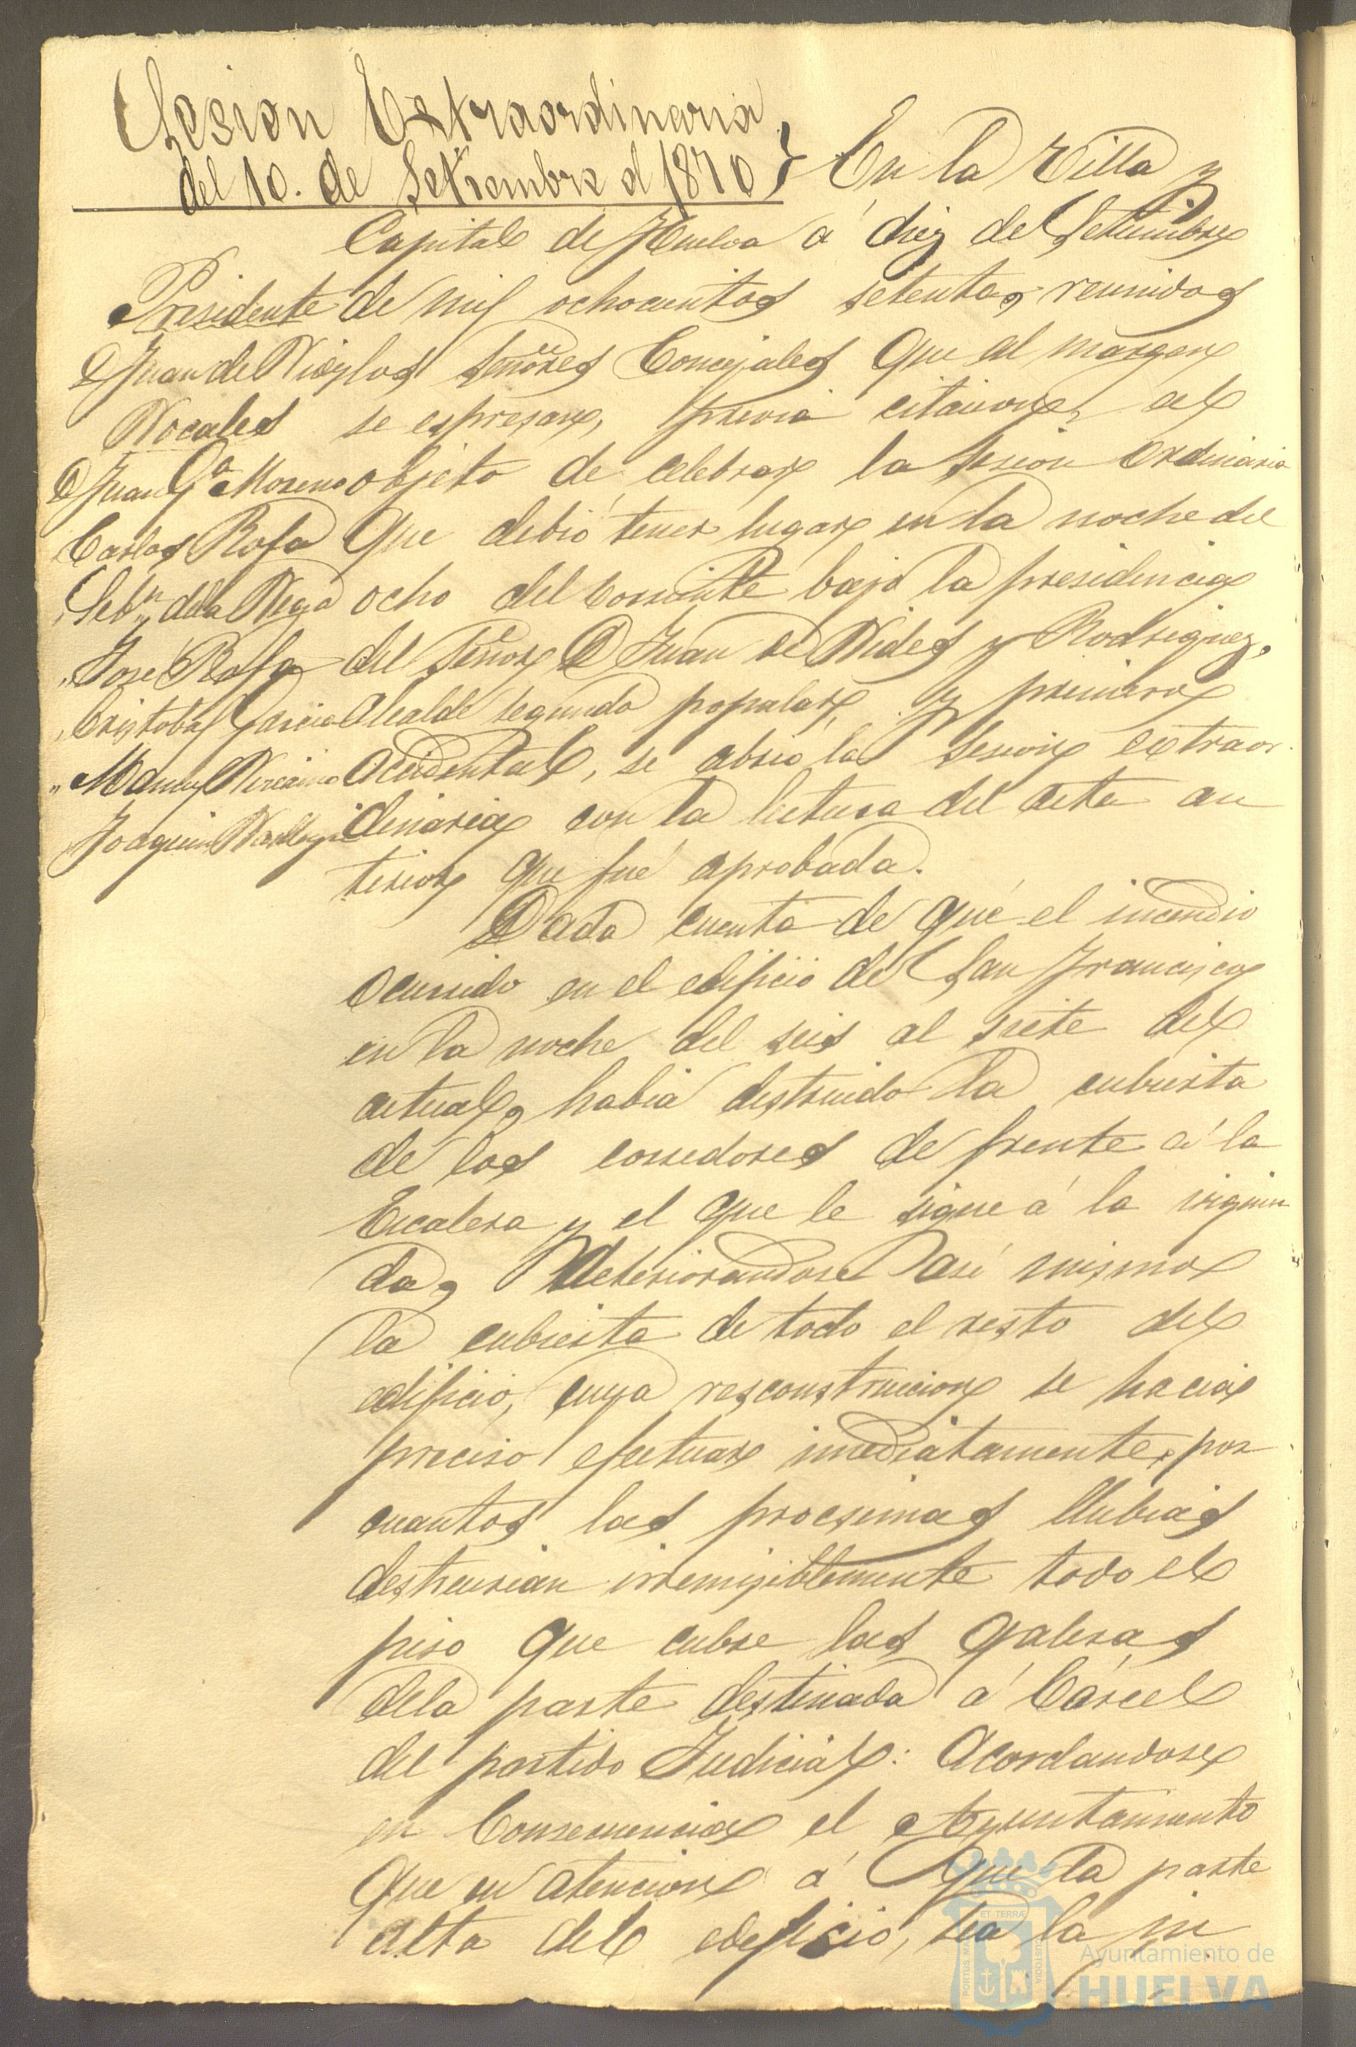 Sesion Extraordinaria
del 10. de Setiembre d 1870
En la Villa y
Capital de Huelva á diez de Setiembre
de mil ochocientos setenta, reunidos
los Señores Concejales que al margen
se espresan, previa citacion, al
objeto de celebrar la sesion ordinaria
que debió tener lugar en la noche del
ocho del corriente bajo la presidencia
del Señor D Juan de Vides y Rodriguez,
Alcalde segundo popular y primero
accidental, se abrió la sesion extraor
dinaria con la lectura del acta an
terior que fué aprobada.
Presidente
D Juan de Vides
Vocales
D Juan Ga Moreno
Carlos Rofa
Sebn de la Vega
José Rofa
Cristobal Garcia
" Manuel
Joaquin
Dada cuenta de que el incendio
ocurrido en el edificio de San Francisco
en la noche del seis al siete del
actual, habia destruido la cubierta
de los corredores de frente á la
Escalera y el que le sigue á la izquier
da, deteriorandose asi mismo
la cubierta de todo el resto del
edificio, cuya resconstruccion se hacia
preciso efectuar imediatamente, por
cuantos las procsimas llubias
destruirian irremisiblemente todo el
piso que cubre las galeras
dela parte destinada á Cárcel
del partido Judicial: Acordandose
en Consecuencia el Ayuntamiento
que en atencion á que la parte
alta del edeficio, sea la in
Ayuntamiento de
HUELVA